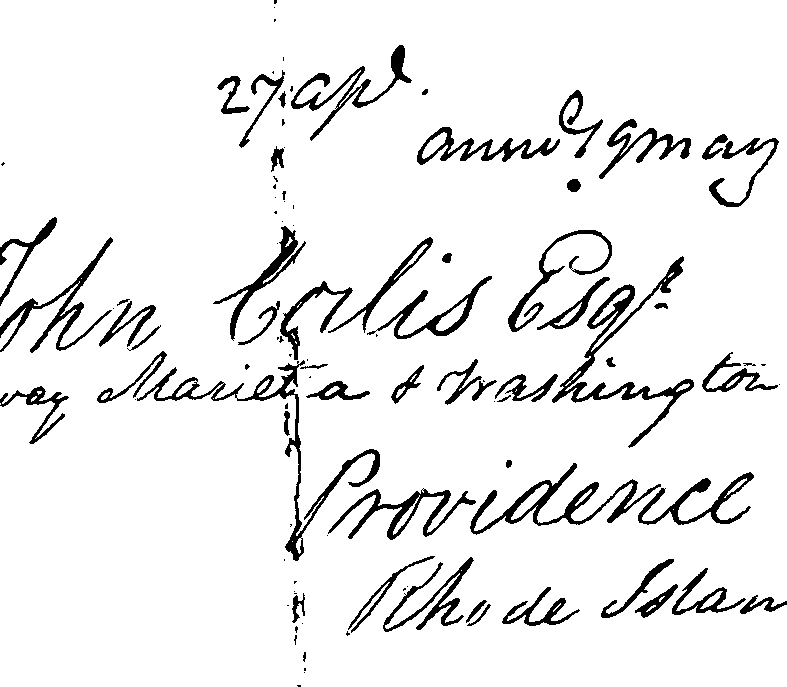 27 apl.
John Corlis Esqr.
way Marietta & Washington
Providence
Rhode Islan